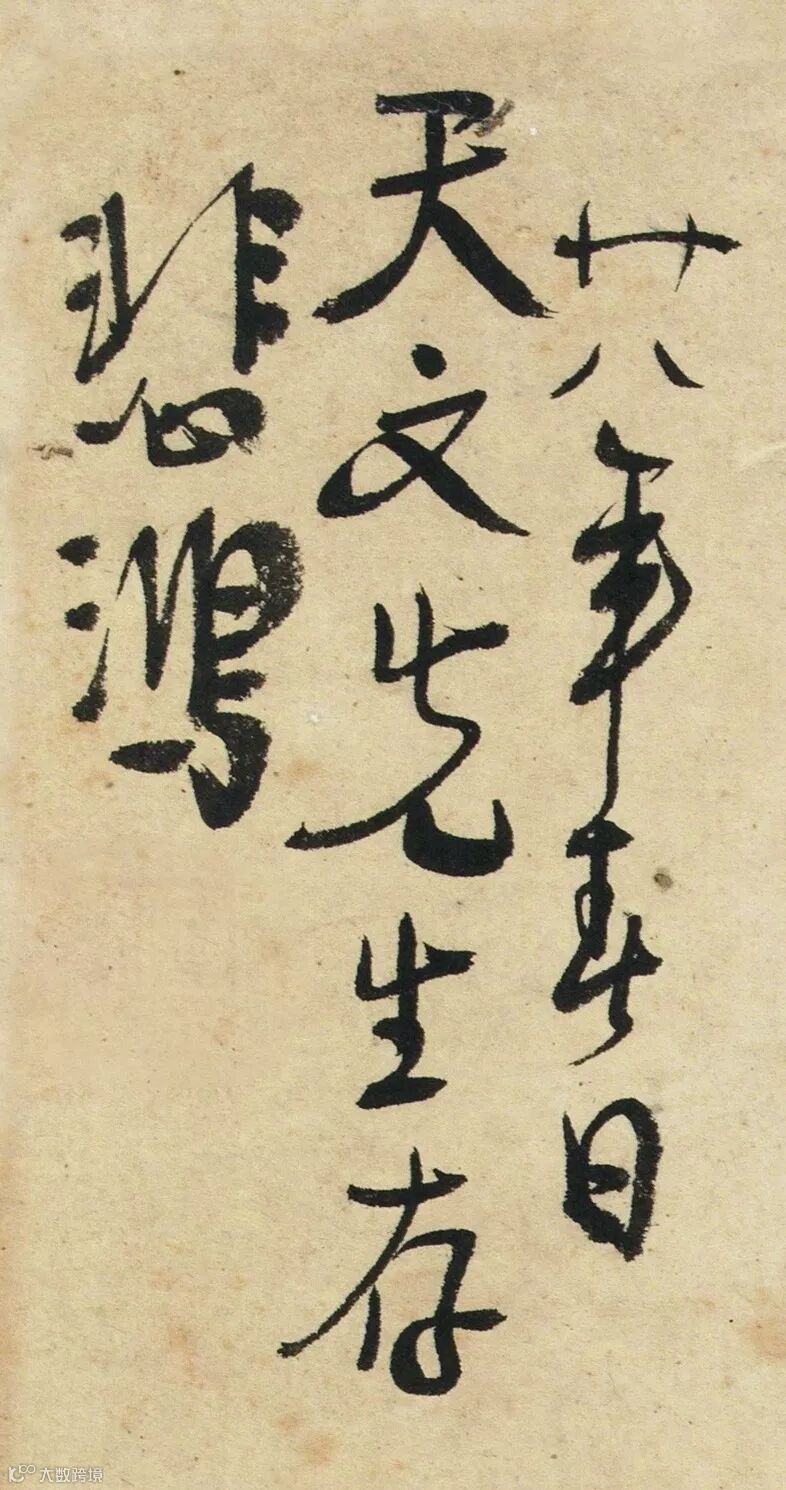 廿八年春日
天文先生存
悲鴻
大数跨境